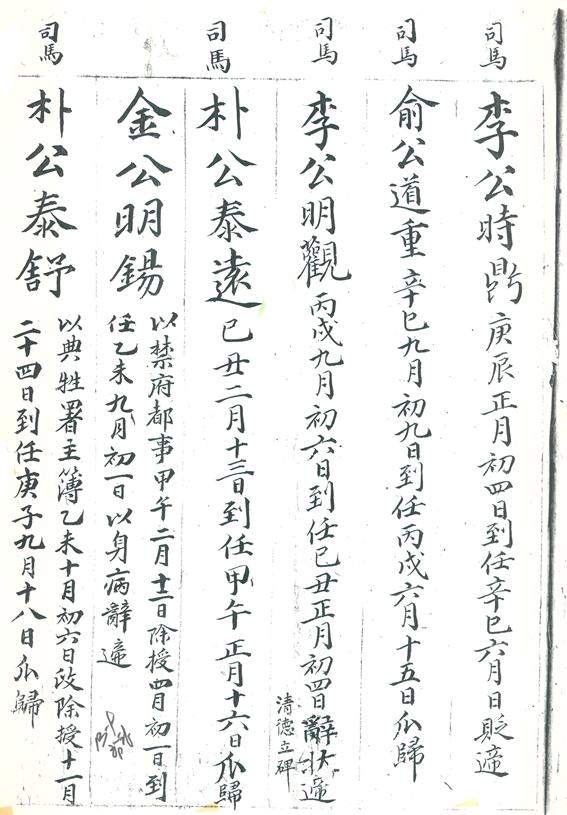 司馬
李公時鼎 庚辰正月初四日到任辛巳六月日貶遞
司馬
俞公道重 辛巳九月初九日到任丙戌六月十五日瓜歸
司馬
李公明觀 丙戌九月初六日到任己丑正月初四日辭狀遞
清德立碑
司馬
朴公泰遠 己丑二月十三日到任甲午正月十六日瓜歸
金公明錫
以禁府都事甲午二月十二日除授四月初一日到
任乙未九月初一日以身病辭遞
司馬
朴公泰舒
以典牲署主簿乙未十月初六日政除授十一月
二十四日到任庚子九月十八日瓜歸